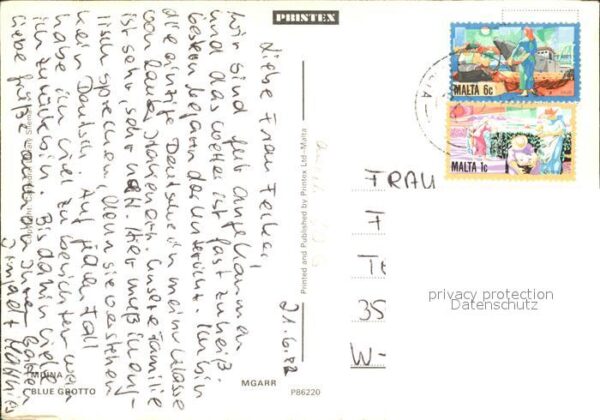 PRINTEX
MALTA 6c
MALTA 1c
Liebe Frau
wir sind gut angekommen
und das Wetter ist fast zu heiß.
Gestern begann der Unterricht. Ich bin
die einzige Deutsche in meiner Klasse
von lauter Italienern. Unsere Familie
ist sehr, sehr nett. Hier muß ich eng-
lisch sprechen, denn sie verstehen
kein Deutsch. Auf jeden Fall
habe ich viel zu berichten wenn
ich zurück bin. Bis dahin viele
liebe Grüße
21.6.82
Printed and Published by Printex Ltd–Malta
FRAU
F
Tt
35
W-
privacy protection
Datenschutz
MDINA
BLUE GROTTO
MGARR
P86220